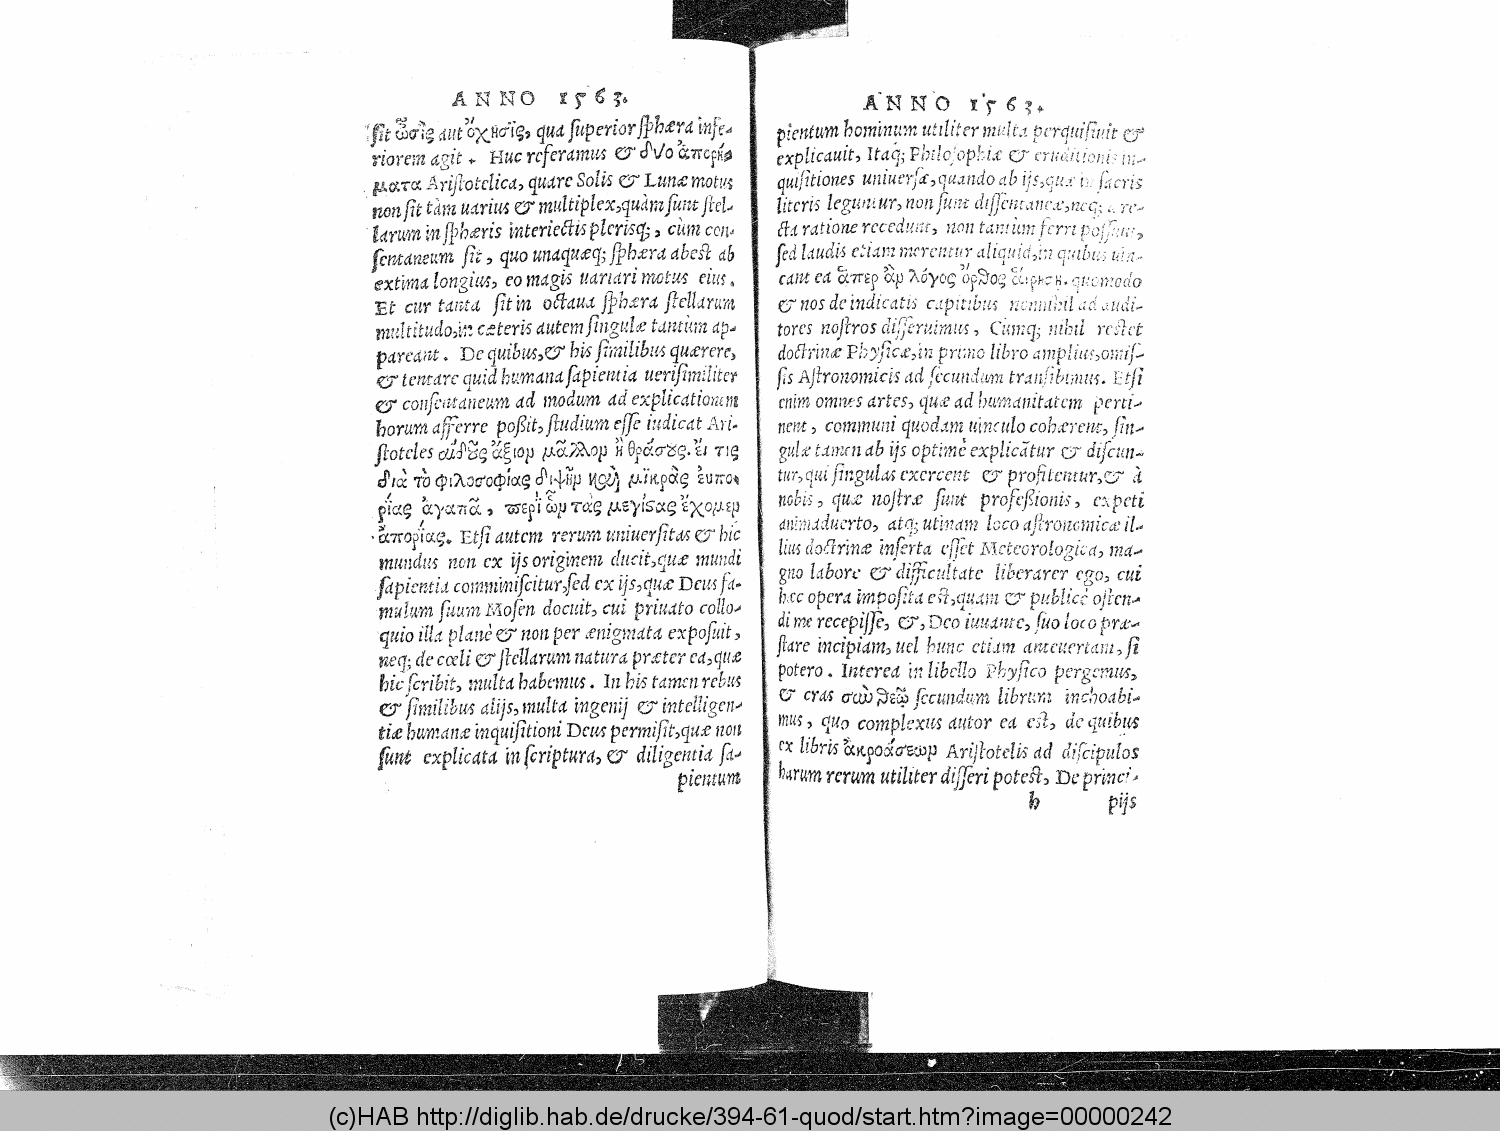 ANNO 1563.
ſit ὦσις aut ὄχησις, qua ſuperior ſphæra infe-
riorem agit. Huc referamus & δύο ἀπορή-
ματα Ariſtotelica, quare Solis & Lunæ motus
non ſit tàm uarius & multiplex, quàm ſunt ſtel-
larum in ſphæris interiectis plerisq;, cùm con-
ſentaneum ſit, quo unaquæq; ſphæra abeſt ab
extima longius, eo magis uariari motus eius.
Et cur tanta ſit in octaua ſphæra ſtellarum
multitudo, in cæteris autem ſingulæ tantùm ap-
pareant. De quibus, & his ſimilibus quærere,
& tentare quid humana ſapientia ueriſimiliter
& conſentaneum ad modum ad explicationem
horum afferre poßit, ſtudium eſſe iudicat Ari-
ſtoteles αἰδοῦς ἄξιον μᾶλλον ἢ θράσους. εἴ τις
διὰ τὸ φιλοσοφίας διψῆν καὶ μικρὰς εὐπο-
ρίας ἀγαπᾶ, περὶ ὧν τὰς μεγίστας ἔχομεν
ἀπορίας. Etſi autem rerum uniuerſitas & hic
mundus non ex ijs originem ducit, quæ mundi
ſapientia comminiſcitur, ſed ex ijs, quæ Deus fa-
mulum ſuum Moſen docuit, cui priuato collo-
quio illa planè & non per ænigmata expoſuit,
neq; de cœli & ſtellarum natura præter ea, quæ
hic ſcribit, multa habemus. In his tamen rebus
& ſimilibus alijs, multa ingenij & intelligen-
tiæ humanæ inquiſitioni Deus permiſit, quæ non
ſunt explicata in ſcriptura, & diligentia ſa-
pientum
ANNO 1563.
pientum hominum utiliter multa perquiſiuit &
explicauit, Itaq; Philoſophiæ & eruditionis in-
quiſitiones uniuerſæ, quando ab ijs, quæ in ſacris
literis leguntur, non ſunt diſſentaneæ, neq; a re-
cta ratione recedunt, non tantùm ferri poſſunt,
ſed laudis etiam merentur aliquid, in quibus
ea ἅπερ ἂν λόγος ὀρθὸς quomodo
& nos de indicatis capitibus nonnihil ad audi-
tores noſtros diſſeruimus, Cùmq; nihil reſtet
doctrinæ Phyſicæ, in primo libro amplius, omiſ-
ſis Aſtronomicis ad ſecundum tranſibimus. Etſi
enim omnes artes, quæ ad humanitatem perti-
nent, communi quodam uinculo cohærent, ſin-
gulæ tamen ab ijs optimè explicãtur & diſcun-
tur, qui ſingulas exercent & profitentur, & à
nobis, quæ noſtræ ſunt profeßionis, expeti
animaduerto, atq; utinam loco aſtronomicæ il-
lius doctrinæ inſerta eſſet Meteorologica, ma-
gno labore & difficultate liberarer ego, cui
hæc opera impoſita eſt, quam & publicè oſten-
di me recepiſſe, &, Deo iuuante, ſuo loco præ-
ſtare incipiam, uel hunc etiam anteuertam, ſi
potero. Interea in libello Phyſico pergemus,
& cras σὺν θεῷ ſecundum librum inchoabi-
mus, quo complexus autor ea eſt, de quibus
ex libris ἀκροάσεων Ariſtotelis ad diſcipulos
harum rerum utiliter diſſeri poteſt, De princi-
h pijs
(c)HAB http://diglib.hab.de/drucke/394-61-quod/start.htm?image=00000242